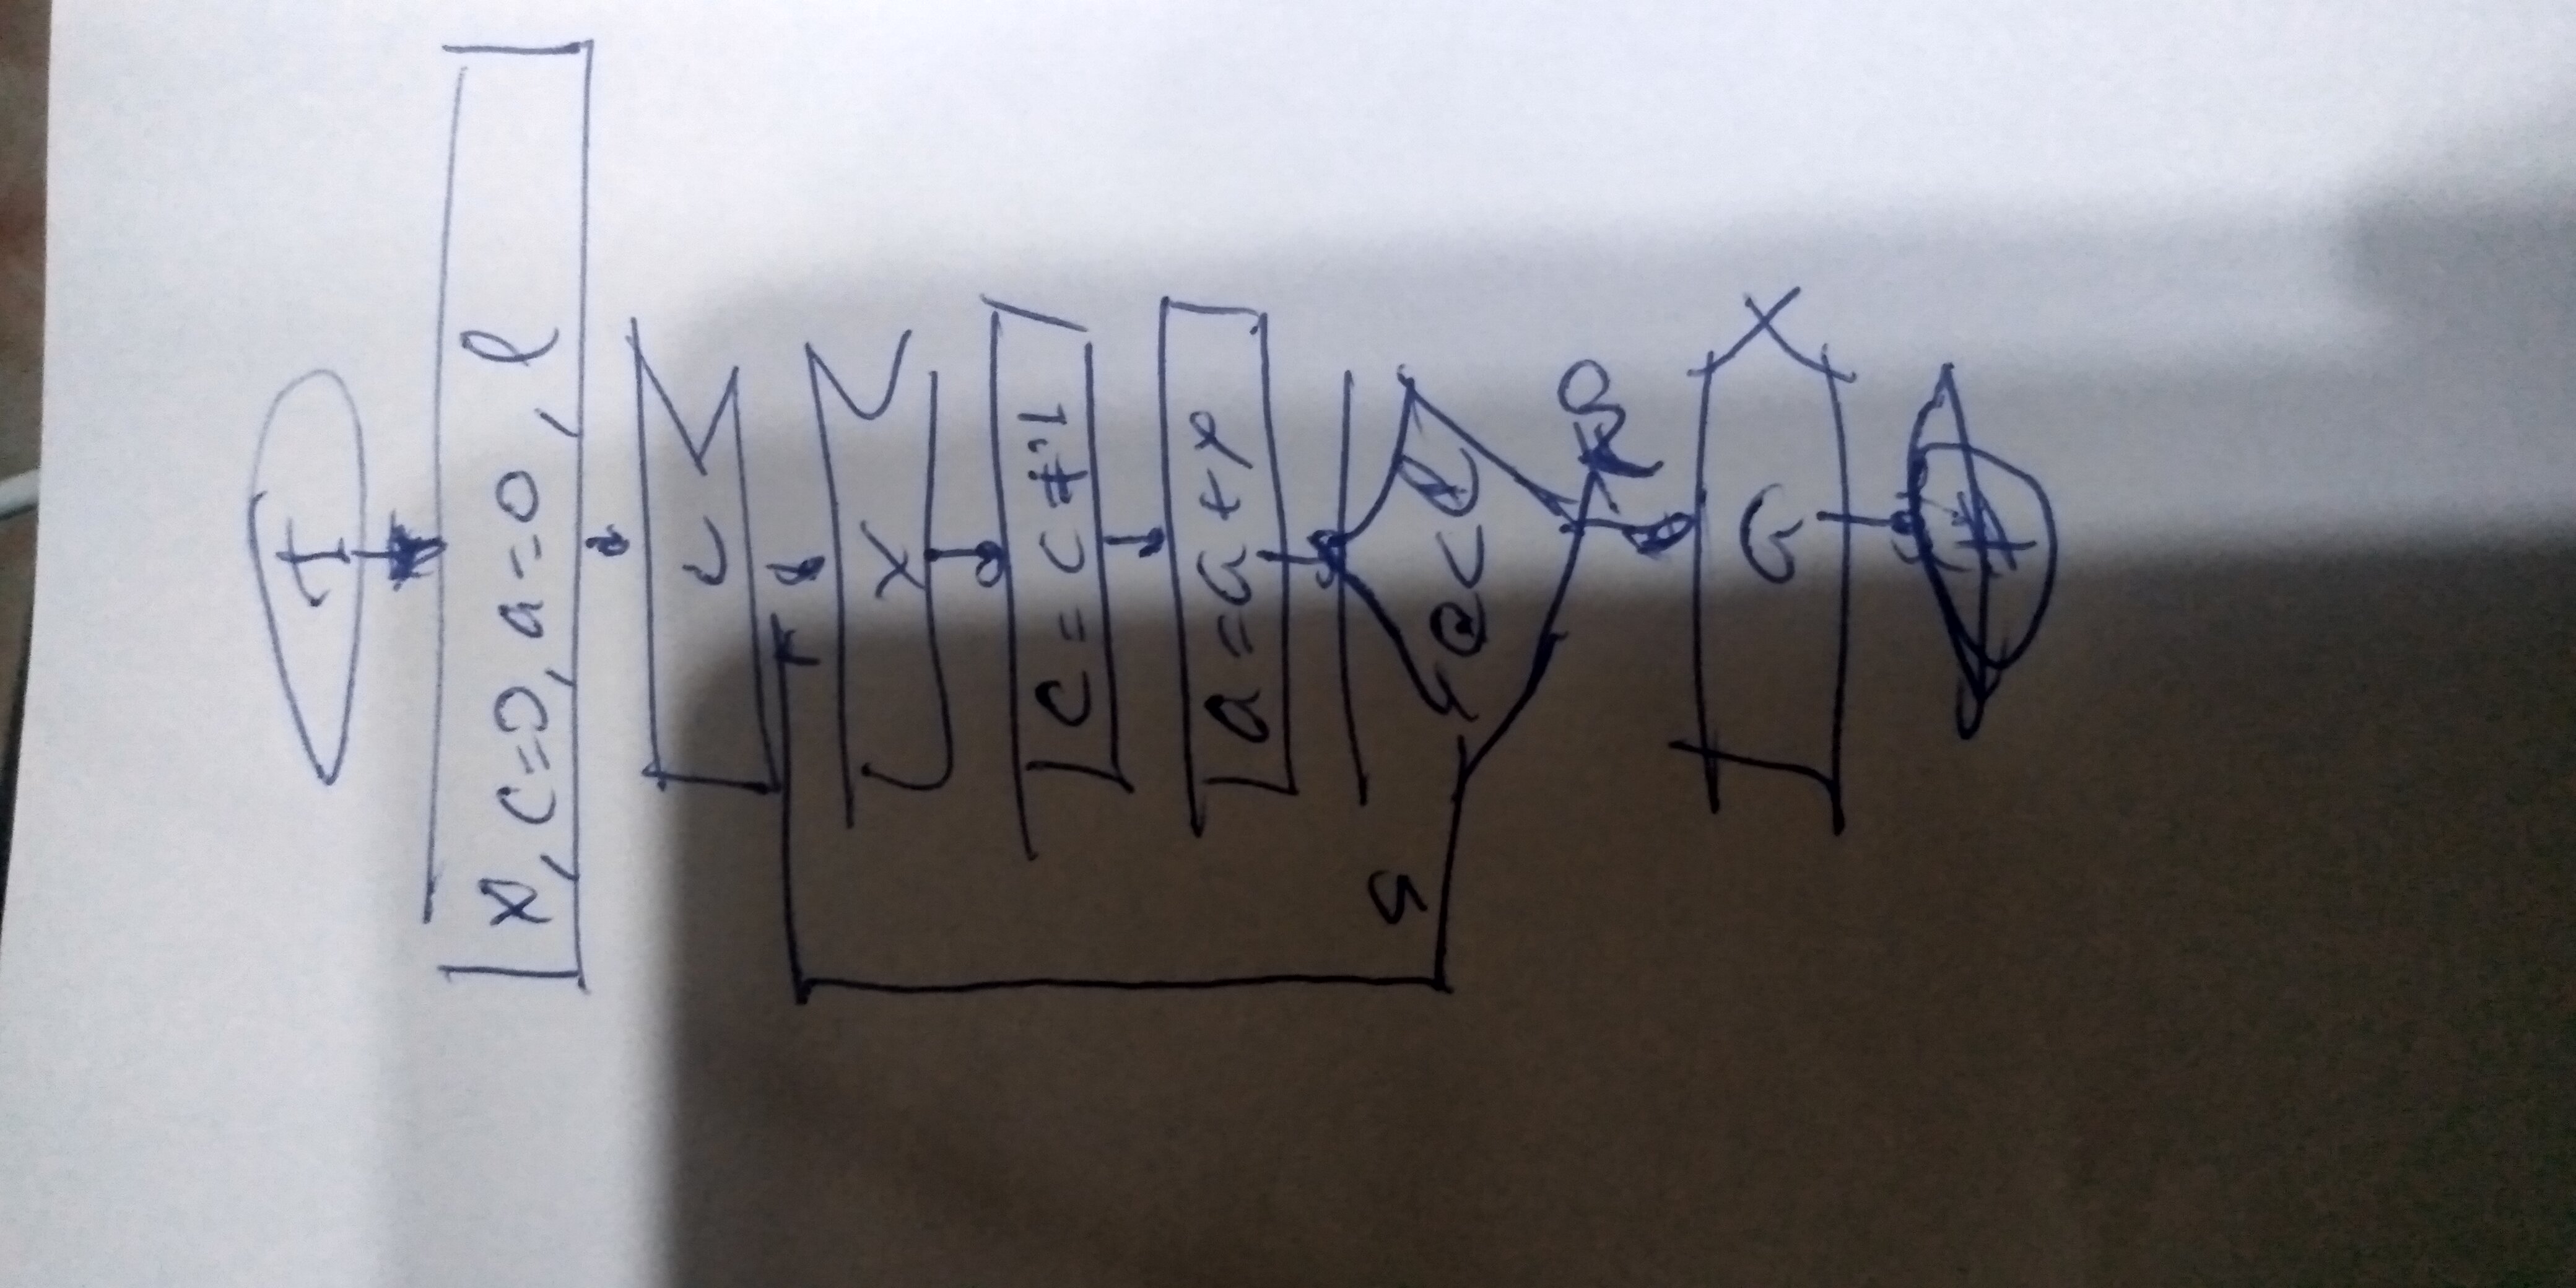 I
x, c=0, a=0, l
L
x
c = c + 1
a = a + x
S
c < l
a
F